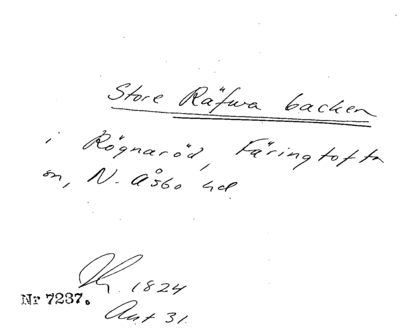 Store Räfwa backen
i Rögnaröd, Färingtofta
sn, N. Åsbo hd.
1824
Nr 7237.
Aut 31.